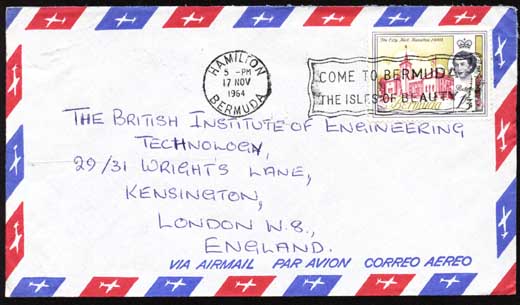 HAMILTON
5 - PM
17 NOV
1964
BERMUDA
COME TO BERMUDA
THE ISLES OF BEAUTY
The City Hall, Hamilton 1960
Bermuda
1/3
THE BRITISH INSTITUTE OF ENGINEERING
TECHNOLOGY,
29/31 WRIGHT'S LANE,
KENSINGTON,
LONDON W.8.,
ENGLAND.
VIA AIRMAIL PAR AVION CORREO AEREO